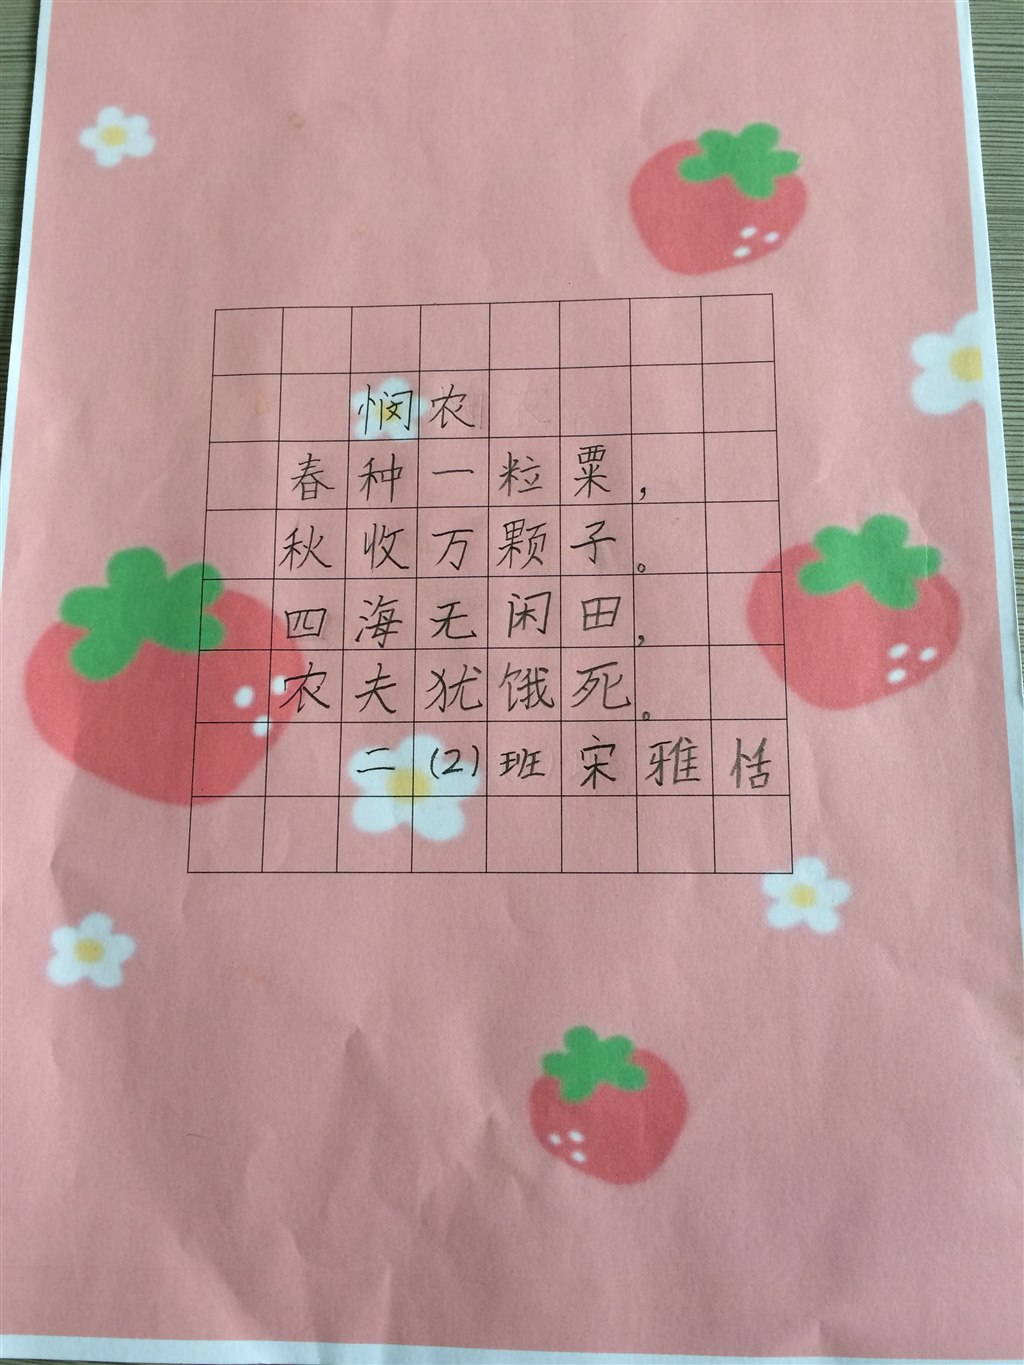 悯农
春种一粒粟，
秋收万颗子。
四海无闲田，
农夫犹饿死。
二(2)班宋雅恬